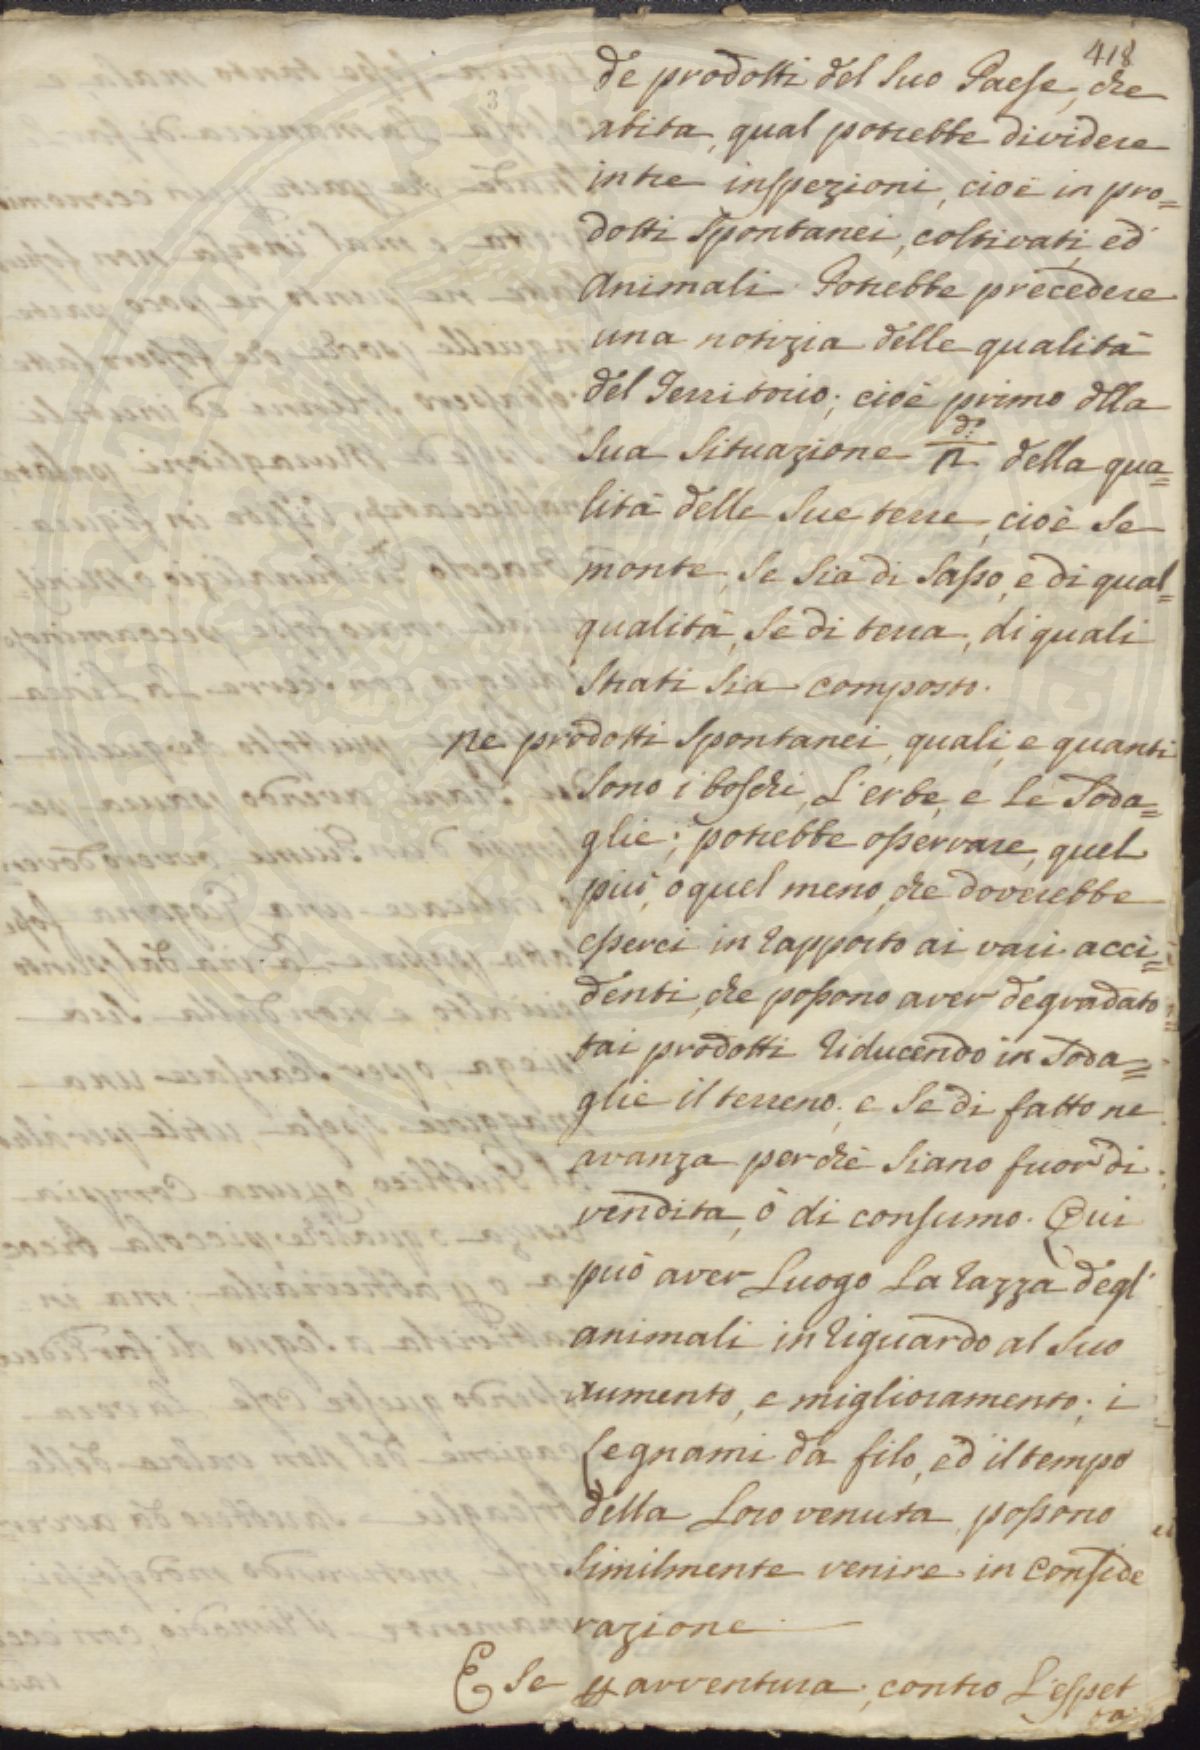 418
de prodotti del suo Paese, che
abita, qual potrebbe dividere
in tre inspezioni, cioè in pro=
dotti spontanei, coltivati, ed
Animali. Potrebbe precedere
una notizia delle qualità
del Territorio; cioè primo dlla
sua situazione della qua=
lità delle sue terre, cioè se
monte, se sia di sasso, e di qual=
qualità, se di terra, di quali
strati sia composto.
ne prodotti spontanei, quali, e quanti
sono i boschi, L'erbe, e le Soda=
glie; potrebbe osservare, quel
più, o quel meno, che doverebbe
esserci in rapporto ai varii acci=
denti, che possono aver degradato
tai prodotti riducendo in Soda=
glie il terreno; e se di fatto ne
avanza perchè siano fuor di
vendita, ò di consumo. Qui
può aver Luogo La razza degl'
animali in riguardo al suo
aumento, e miglioramento; i
Legnami da filo, ed il tempo
della Loro venuta, possono
similmente venire in conside
razione.
E se avventura, contro L'espet